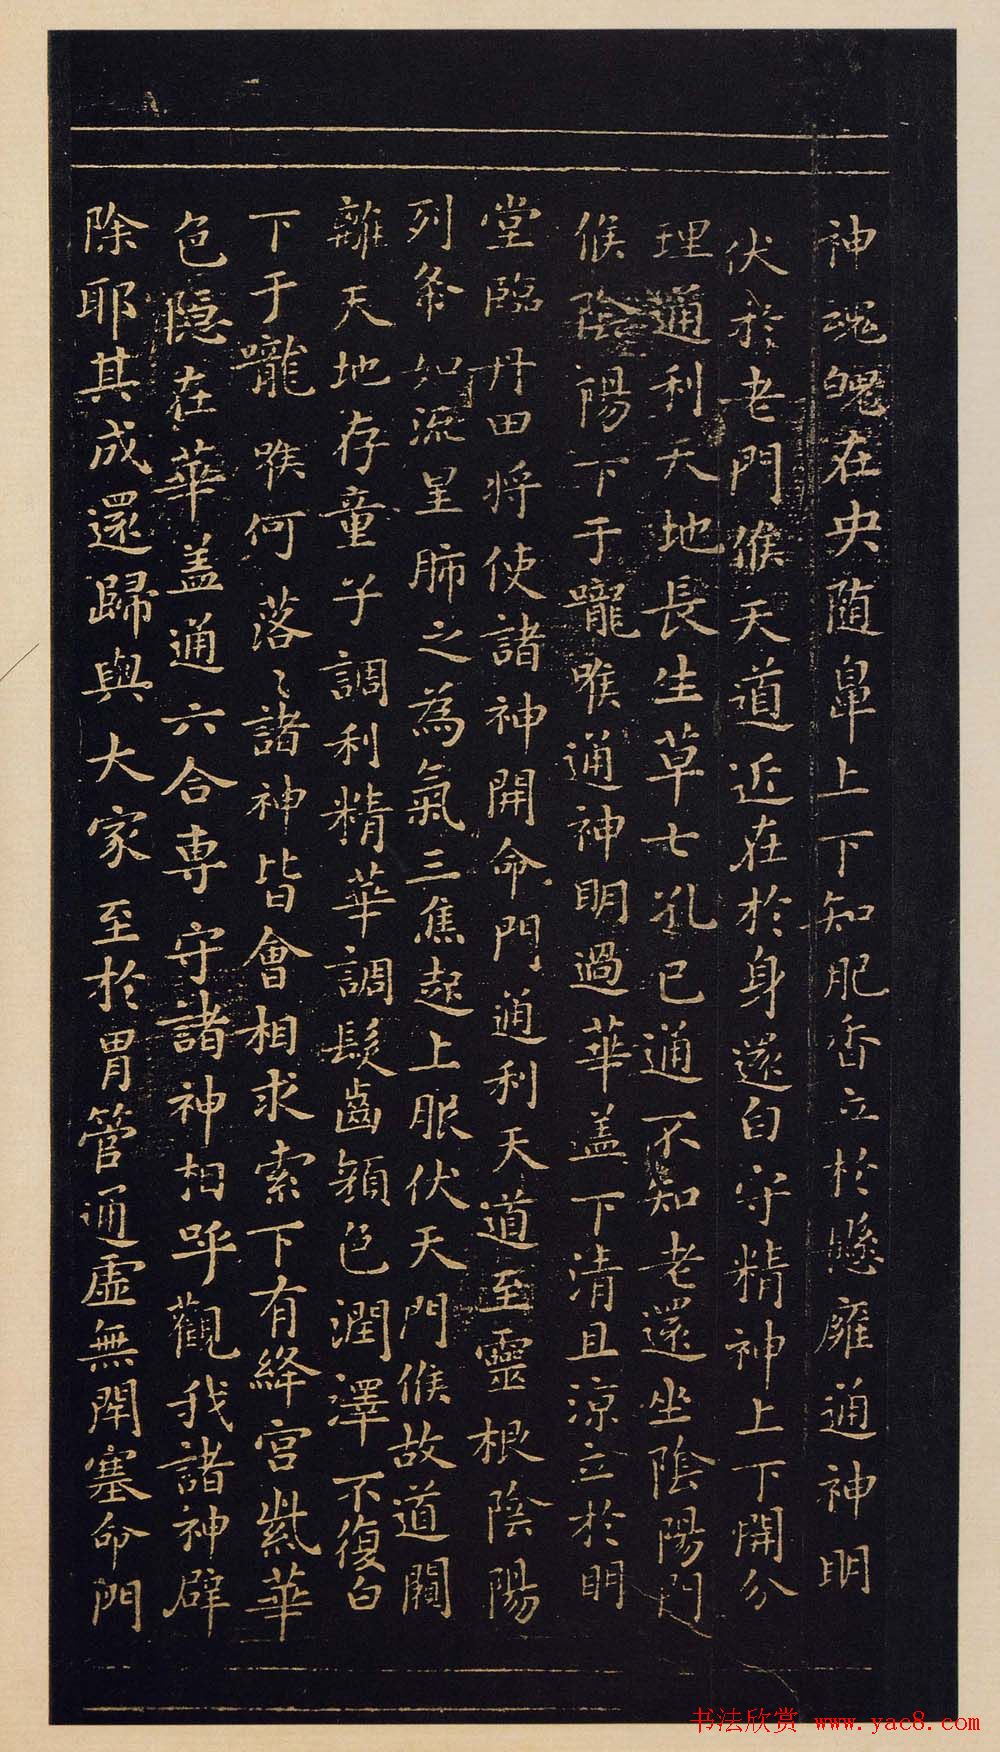 神魂魄在央随鼻上下知肥香立於懸廱通神明
伏於老門候天道近在於身還自守精神上下開分
理通利天地長生草七孔已通不知老還坐陰陽門
候陰陽下于嚨喉通神明過華盖下清且涼立於明
堂臨丹田将使諸神開命門通利天道至靈根陰陽
列布如流星肺之為氣三焦起上服伏天門候故道闚
離天地存童子調利精華調髮齒顏色潤澤不復白
下于嚨喉何落〻諸神皆會相求索下有絳宮紫華
色隱在華盖通六合專守諸神相呼觀我諸神辟
除耶其成還歸與大家至於胃管通虛無閉塞命門
书法欣赏 www.yac8.com